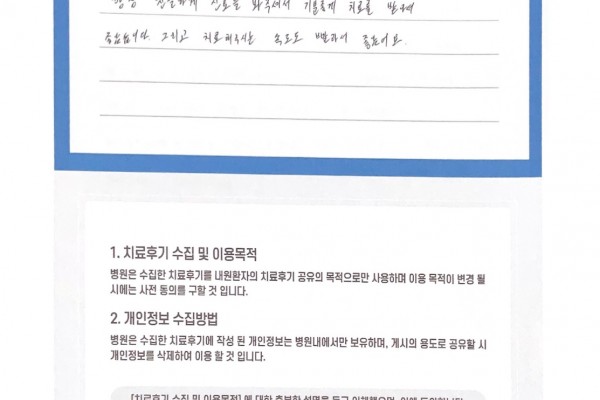 항상 친절하게 진료를 봐주셔서 기분좋게 치료를 받
좋았습니다 그리고 치료해주시는 속도도 빨라서 좋았어요.
1. 치료후기 수집 및 이용목적
병원은 수집한 치료후기를 내원환자의 치료후기 공유의 목적으로만 사용하며 이용 목적이 변경 될
시에는 사전 동의를 구할 것 입니다.
2. 개인정보 수집방법
병원은 수집한 치료후기에 작성 된 개인정보는 병원내에서만 보유하며, 게시의 용도로 공유할 시
개인정보를 삭제하여 이용 할 것 입니다.
[치료후기 수집 및 이용목적] 에 대한 충분한 설명을 듣고 이해했으며, 이에 동의합니다